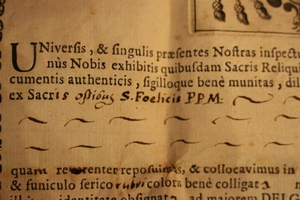 Universis, & singulis præsentes Nostras inspectu
nùs Nobis exhibitis quibusdam Sacris Reliqui
cumentis authenticis, sigilloque benè munitas, dil
ex Sacris ossibus S. Foelicis P.P.M.
quam reverenter reposuimus, & collocavimus in
& funiculo serico rubri coloris bené colligata
identitate obsignat ad majorem DEI G